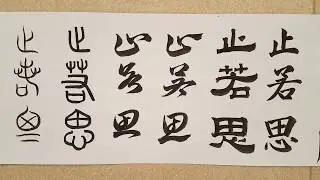 止若思
止若思
止若思
止若思
止若思
止若思